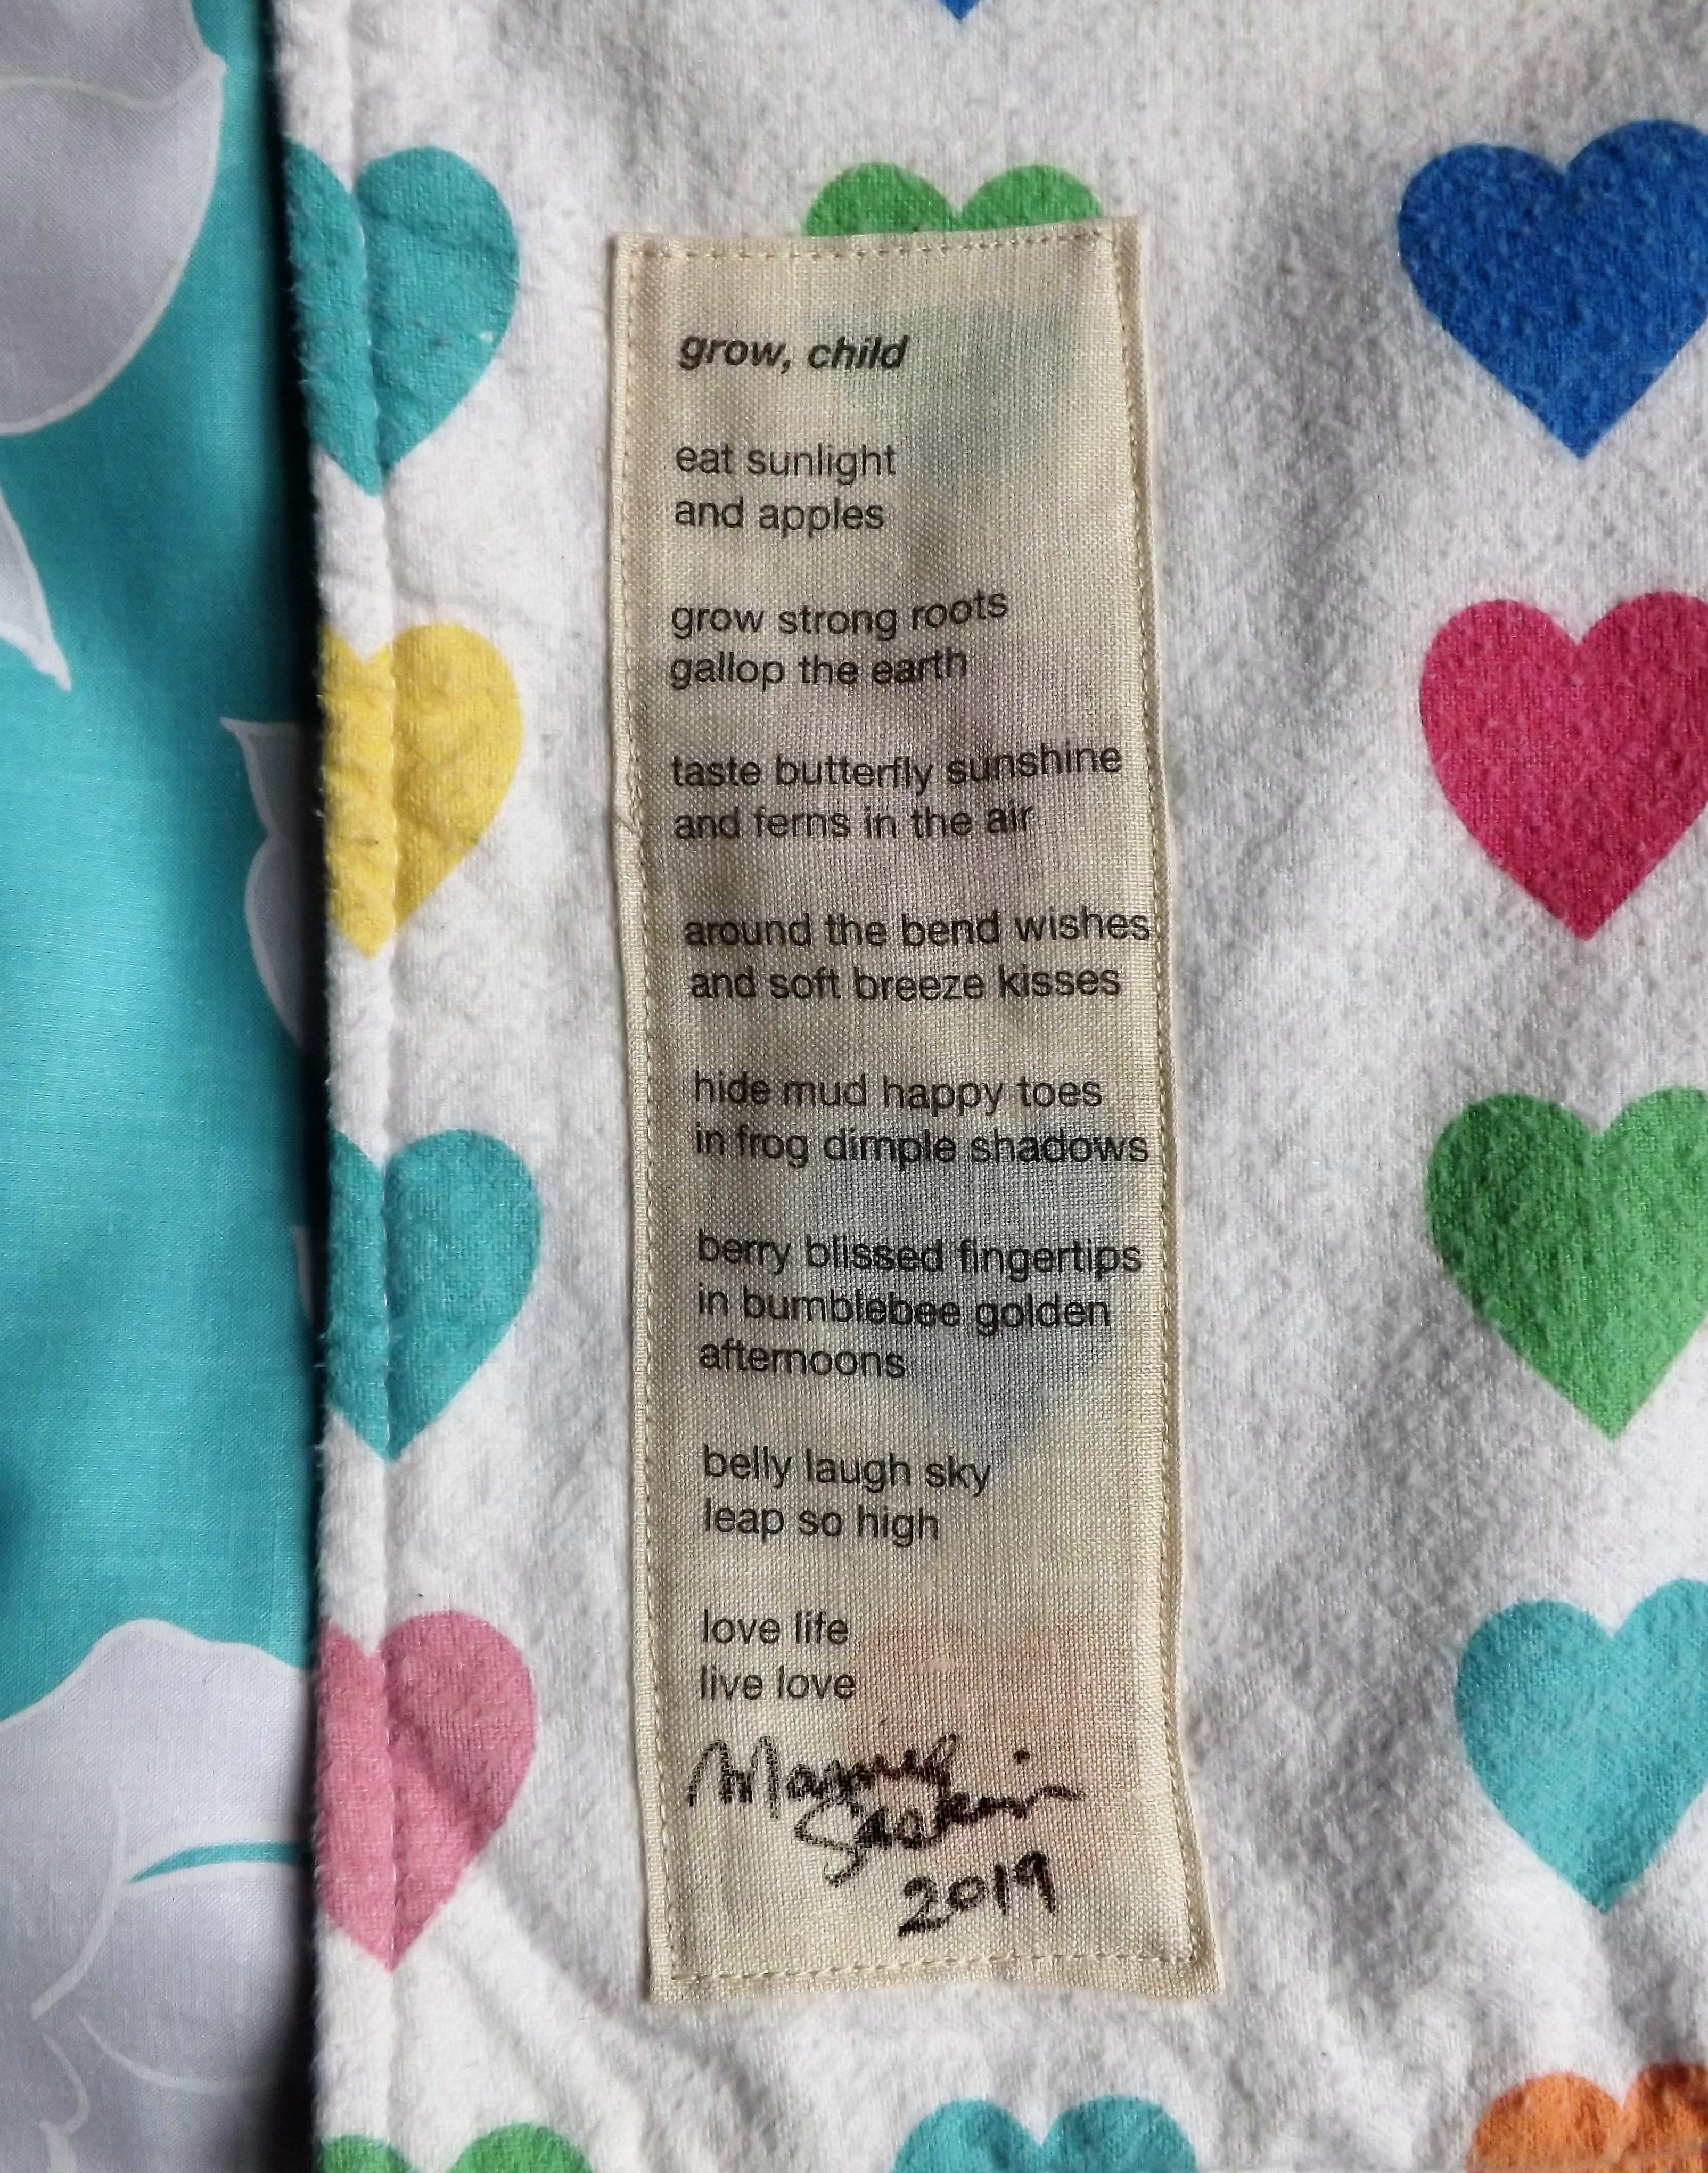 grow, child
eat sunlight
and apples
grow strong roots
gallop the earth
taste butterfly sunshine
and ferns in the air
around the bend wishes
and soft breeze kisses
hide mud happy toes
in frog dimple shadows
berry blissed fingertips
in bumblebee golden
afternoons
belly laugh sky
leap so high
love life
live love
2019